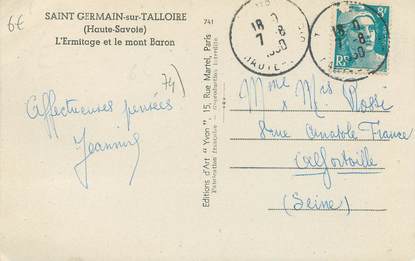 6€
SAINT GERMAIN-sur-TALLOIRE
(Haute-Savoie)
L'Ermitage et le mont Baron
74)
Affectueuses pensées
Jeannine
741
Editions d'Art "Yvon" 15, Rue Martel, Paris
Fabrication française - Reproduction interdite
18
7 -8
1950
HAUTE-
8F
RF
Mme & Mrs Rossi
8 rue Anatole France
Alfortville
(Seine)